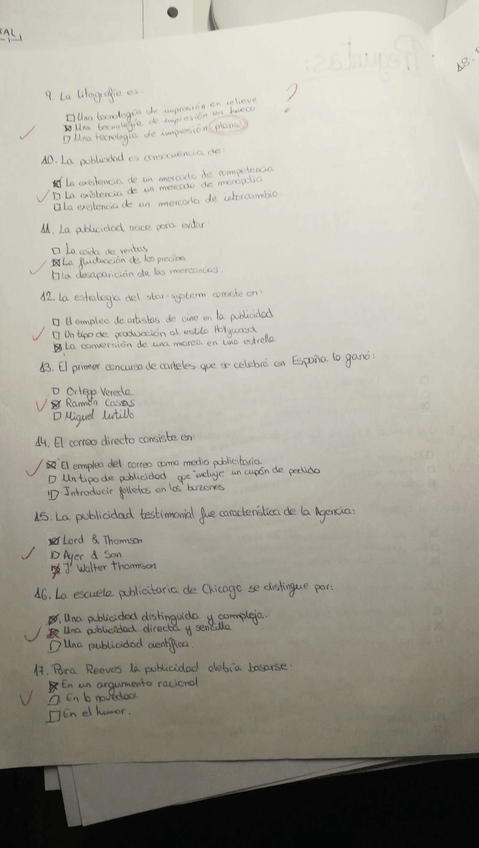 TAL
Preguntas:
9. La litografía es:
Una tecnología de impresión en relieve
Una tecnología de impresión en hueco
Una tecnología de impresión plana
?
10. La publicidad es consecuencia de:
La existencia de un mercado de competencia
La existencia de un mercado de monopolio
La existencia de un mercado de intercambio
11. La publicidad nace para evitar
La caída de ventas
La fluctuación de los precios
La desaparición de las mercancías.
12. La estrategia del star-system consiste en:
El empleo de artistas de cine en la publicidad
Un tipo de producción al estilo Hollywood
La conversión de una marca en una estrella
13. El primer concurso de carteles que se celebró en España lo ganó:
Ortego Vereda
Ramón Casas
Miguel Utrillo
14. El correo directo consiste en:
El empleo del correo como medio publicitario.
Un tipo de publicidad que incluye un cupón de pedido
Introducir folletos en los buzones
15. La publicidad testimonial fue característica de la Agencia:
Lord & Thomson
Ayer & Son
J. Walter Thomson
16. La escuela publicitaria de Chicago se distingue por:
Una publicidad distinguida y compleja.
Una publicidad directa y sencilla
Una publicidad científica.
17. Para Reeves la publicidad debría basarse:
En un argumento racional
En la novedad
En el humor.